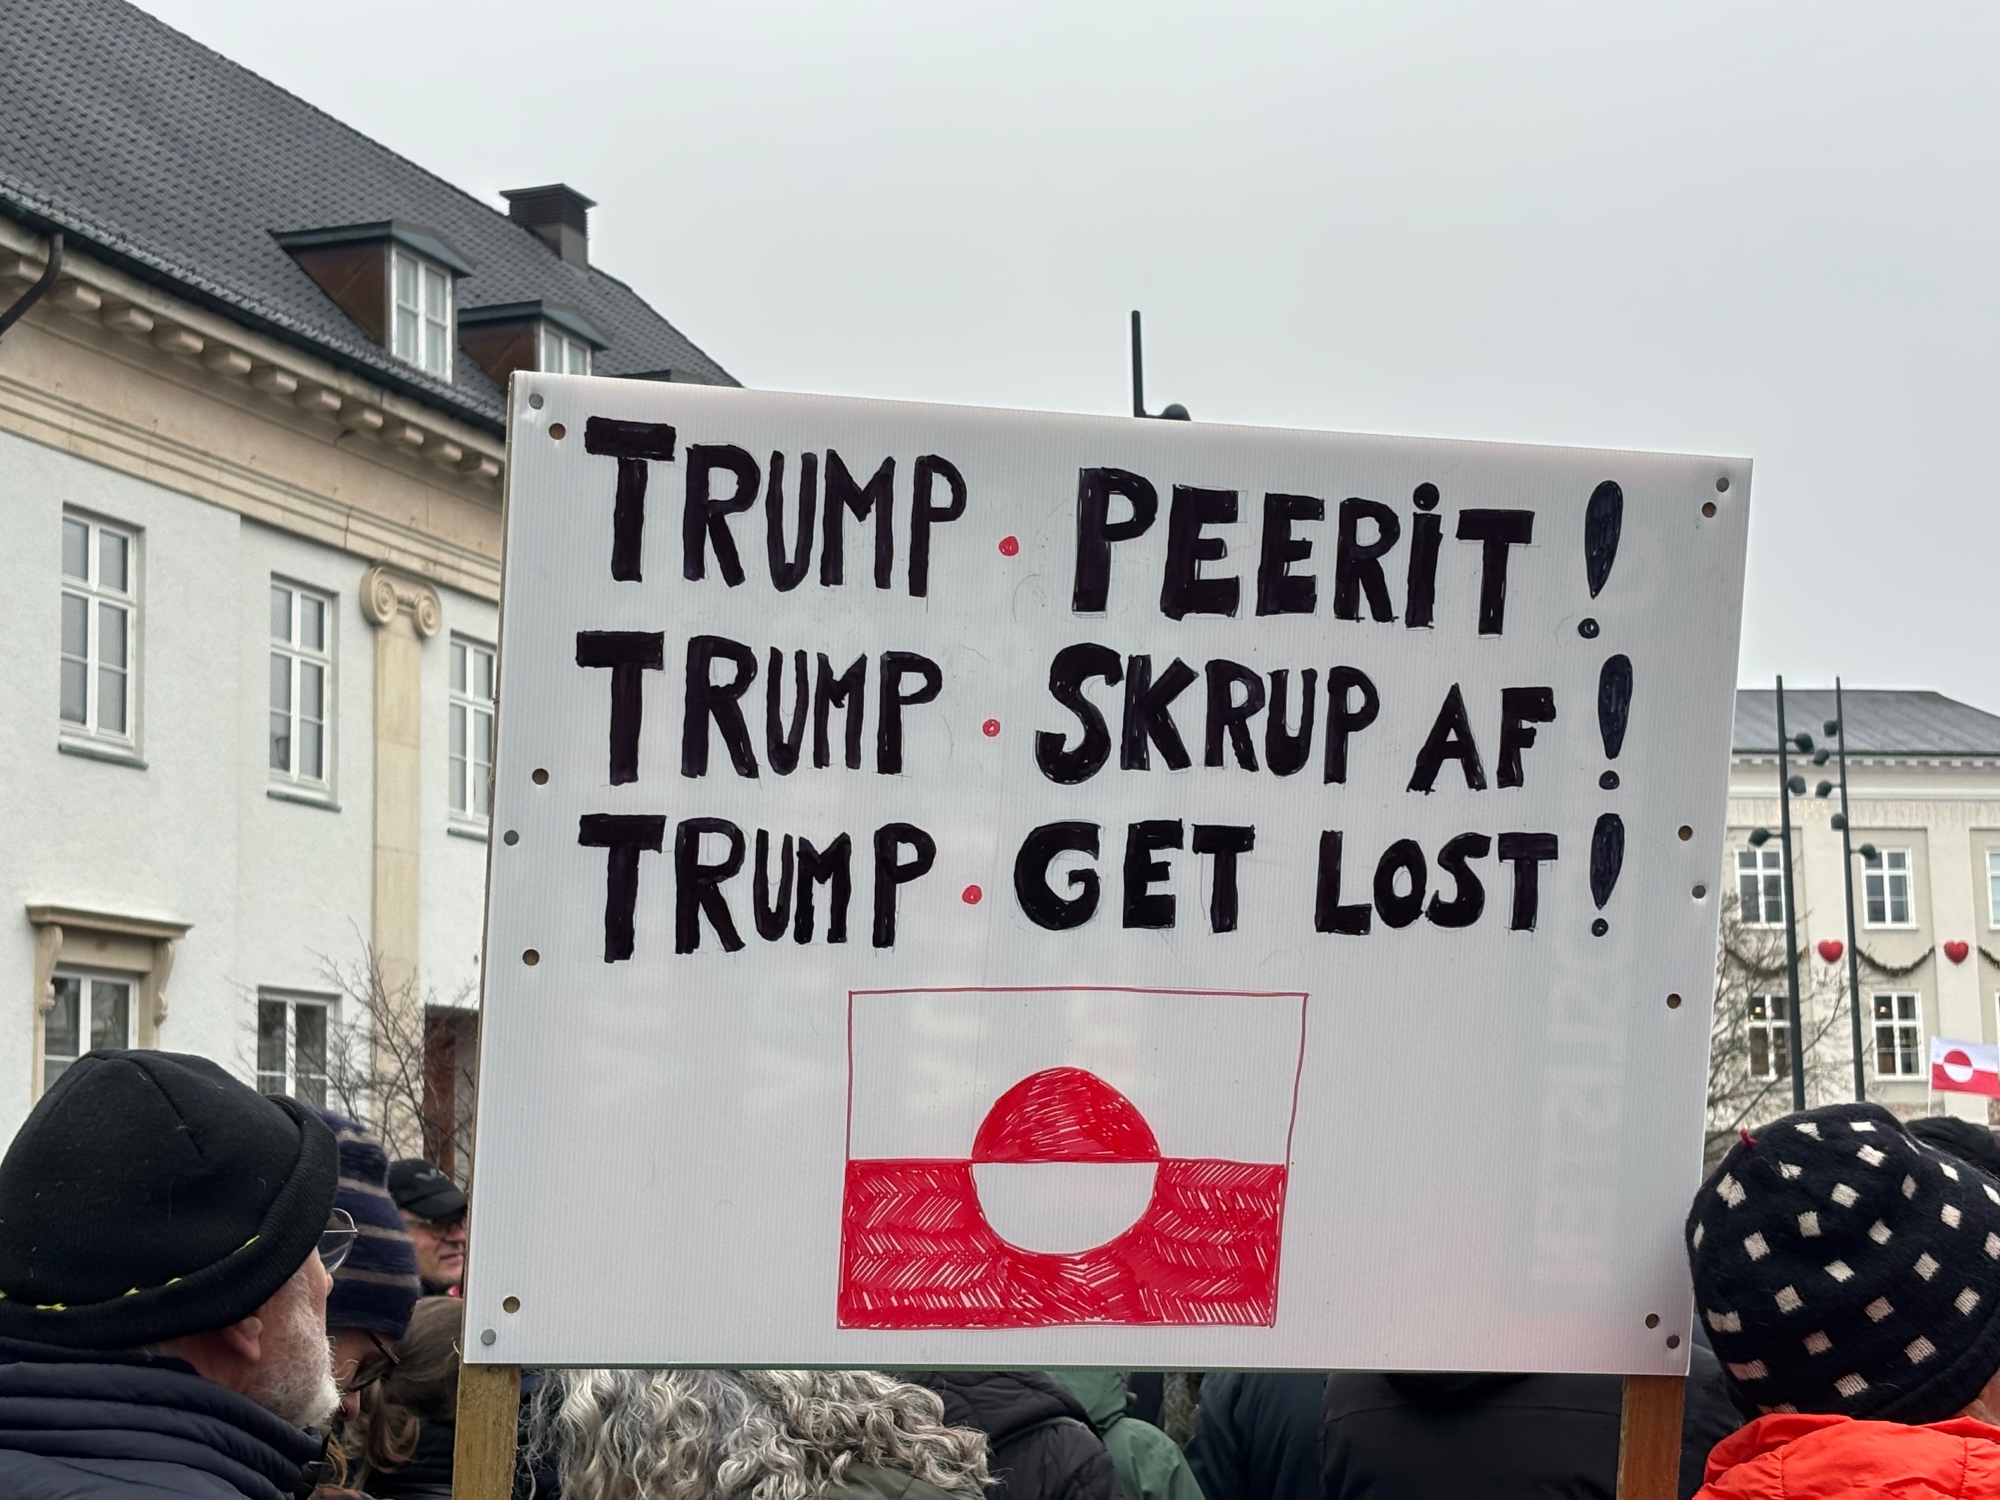 TRUMP • PEERIT!
TRUMP • SKRUP AF!
TRUMP • GET LOST!